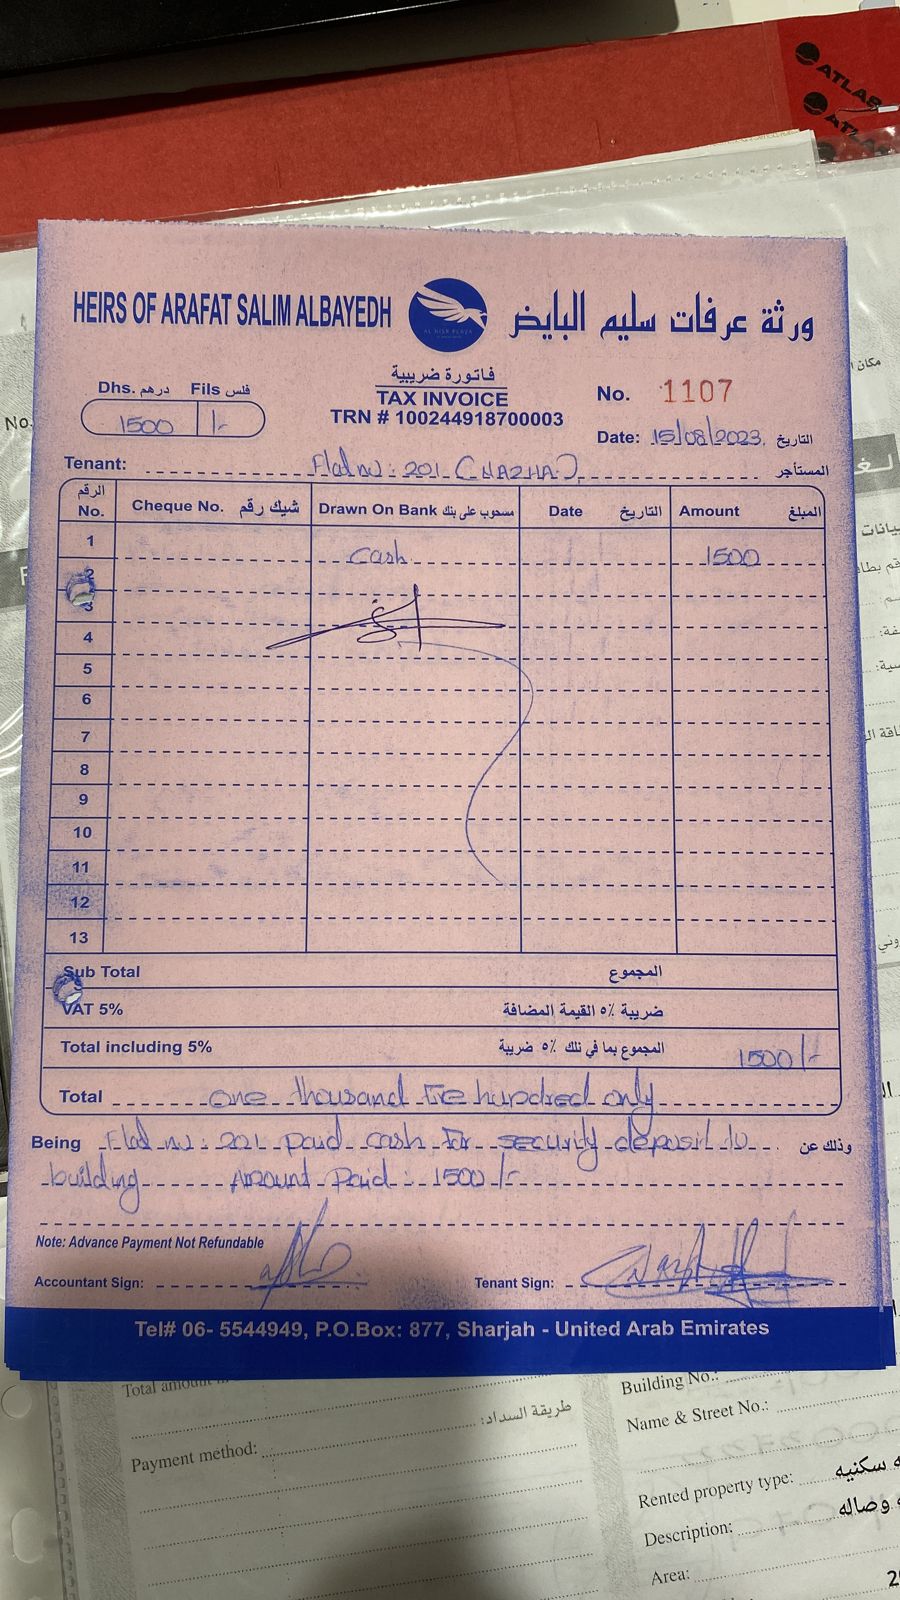 ATLAS
ATLA
HEIRS OF ARAFAT SALIM ALBAYEDH
ورثة عرفات سليم البايض
AL NISR PLAZA
Dhs. درهم Fils فلس
1500 /-
فاتورة ضريبية
TAX INVOICE
TRN # 100244918700003
No. 1107
Date: 15/08/2023 التاريخ
Tenant: Flat no: 201 (NAZHA) المستأجر
الرقم No. Cheque No. شيك رقم Drawn On Bank مسحوب على بنك Date التاريخ Amount المبلغ
1 Cash 1500
2
3
4
5
6
7
8
9
10
11
12
13
Sub Total المجموع
VAT 5% ضريبة ٥٪ القيمة المضافة
Total including 5% المجموع بما في ذلك ٥٪ ضريبة 1500/-
Total one thousand five hundred only
Being Flat no: 201 paid cash for security deposit to وذلك عن
building Amount Paid: 1500/-
Note: Advance Payment Not Refundable
Accountant Sign: Tenant Sign:
Tel# 06- 5544949, P.O.Box: 877, Sharjah - United Arab Emirates
مكان
No.
Total amount
طريقة السداد:
Payment method:
Building No.:
Name & Street No.:
Rented property type: سكنيه
Description: وصاله
Area: